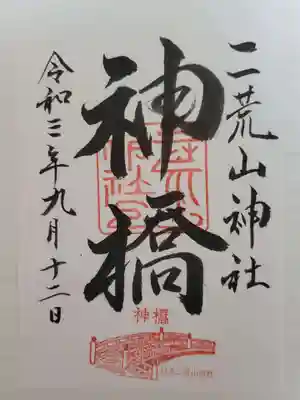 二荒山神社
神橋
令和三年九月十二日
神橋